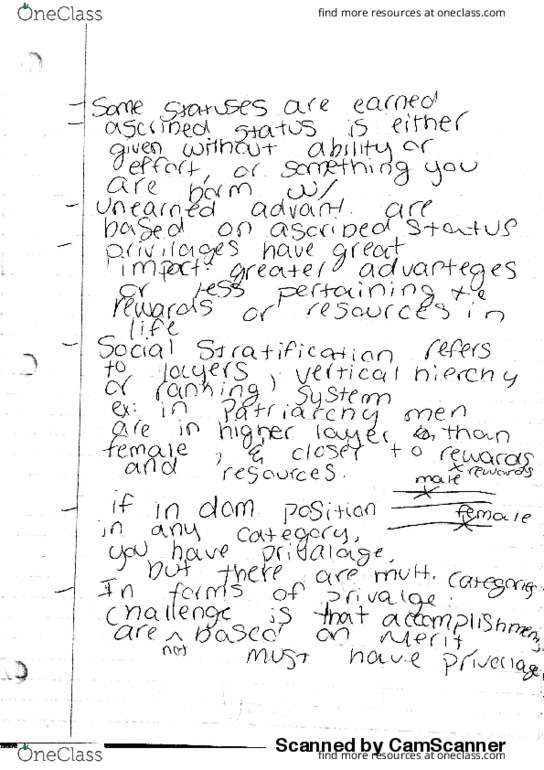 OneClass
find more resources at oneclass.com
- Some statuses are earned
- ascribed status is either
given without ability or
effort, or something you
are born w/
- unearned advant. are
based on ascribed status
- privilages have great
impact: greater advanteges
or less pertaining to
rewards or resources in
life
- Social Stratification refers
to layers, vertical hierchy
or ranking) system
ex: in Patriarchy men
are in higher layer than
female, & closer to rewards
and resources.
x rewards
male
x
female
x
- if in dom. position
in any category,
you have privalage,
but there are mult. categories
- In forms of privalge:
challenge is that accomplishments
are ^ based on Merit
not
must have privellage
Scanned by CamScanner
OneClass
find more resources at oneclass.com